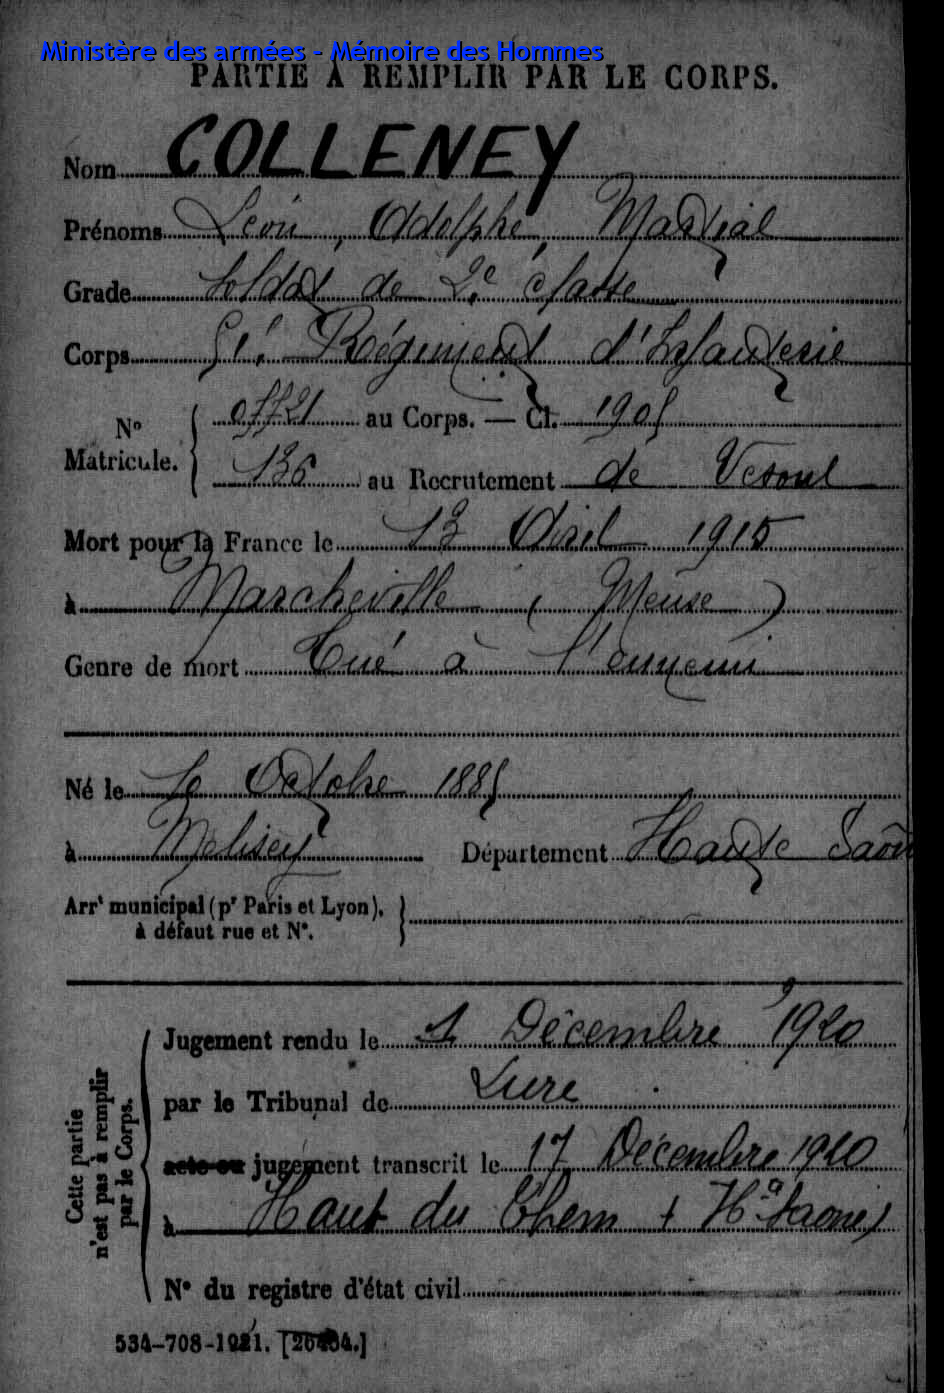 Ministère des armées - Mémoire des Hommes
PARTIE À REMPLIR PAR LE CORPS.
Nom COLLENEY
Prénoms Léon, Adolphe, Martial
Grade Soldat de 2e classe
Corps Régiment d'Infanterie
N° Matricule.
au Corps. — Cl. 1905
136 au Recrutement de Vesoul
Mort pour la France le 13 Avril 1915
à Marcheville (Meuse)
Genre de mort Tué à l'ennemi
Né le 10 Octobre 1885
à Melisey Département Haute Saône
Arrt municipal (pr Paris et Lyon),
à défaut rue et N°.
Cette partie
n'est pas à remplir
par le Corps.
Jugement rendu le 1 Décembre 1920
par le Tribunal de Lure
acte ou jugement transcrit le 17 Décembre 1920
à Haut du Them (Hte Saone)
N° du registre d'état civil
534-708-1921. [26434.]